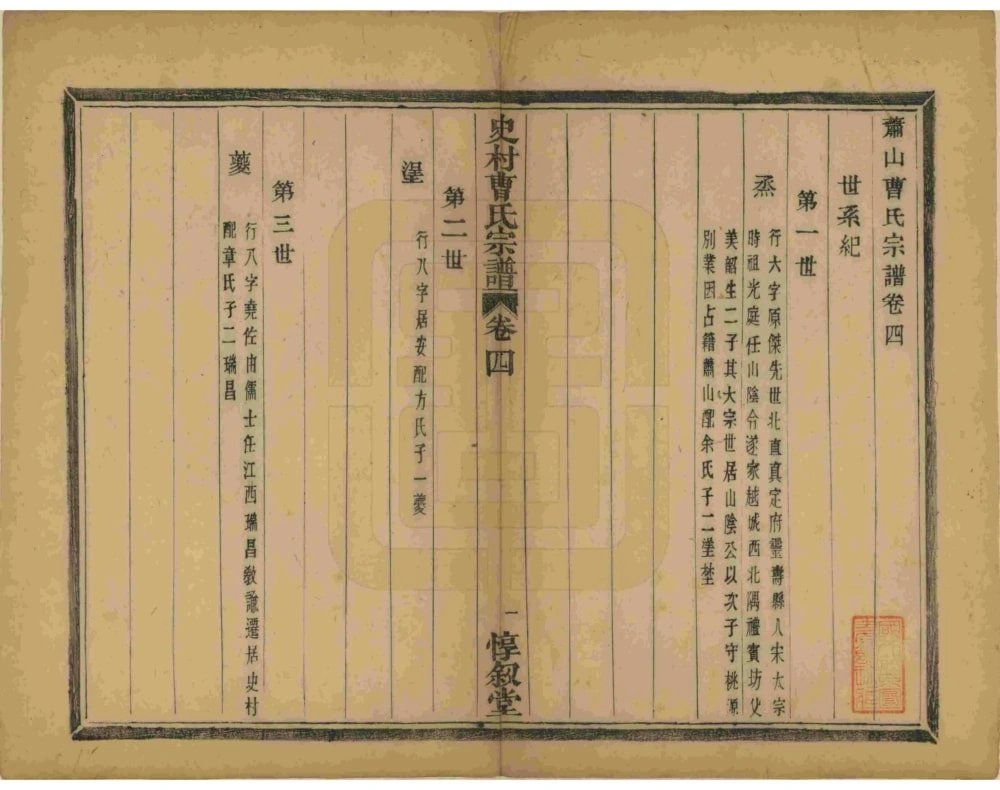 蕭山曹氏宗譜卷四
世系紀
第一世
烝
行大字原傑先世北直真定府靈壽縣人宋太宗
時祖光庭任山陰令遂家越城西北隅禮賓坊父
美解生二子其大宗世居山陰公以次子守桃源
別業因占籍蕭山配余氏子二塣埜
史村曹氏宗譜
卷四
一
惇敘堂
第二世
行八字居安配方氏子一夔
第三世
夔
行八字堯佐由儒士任江西瑞昌教諭遷居史村
配章氏子二瑞昌